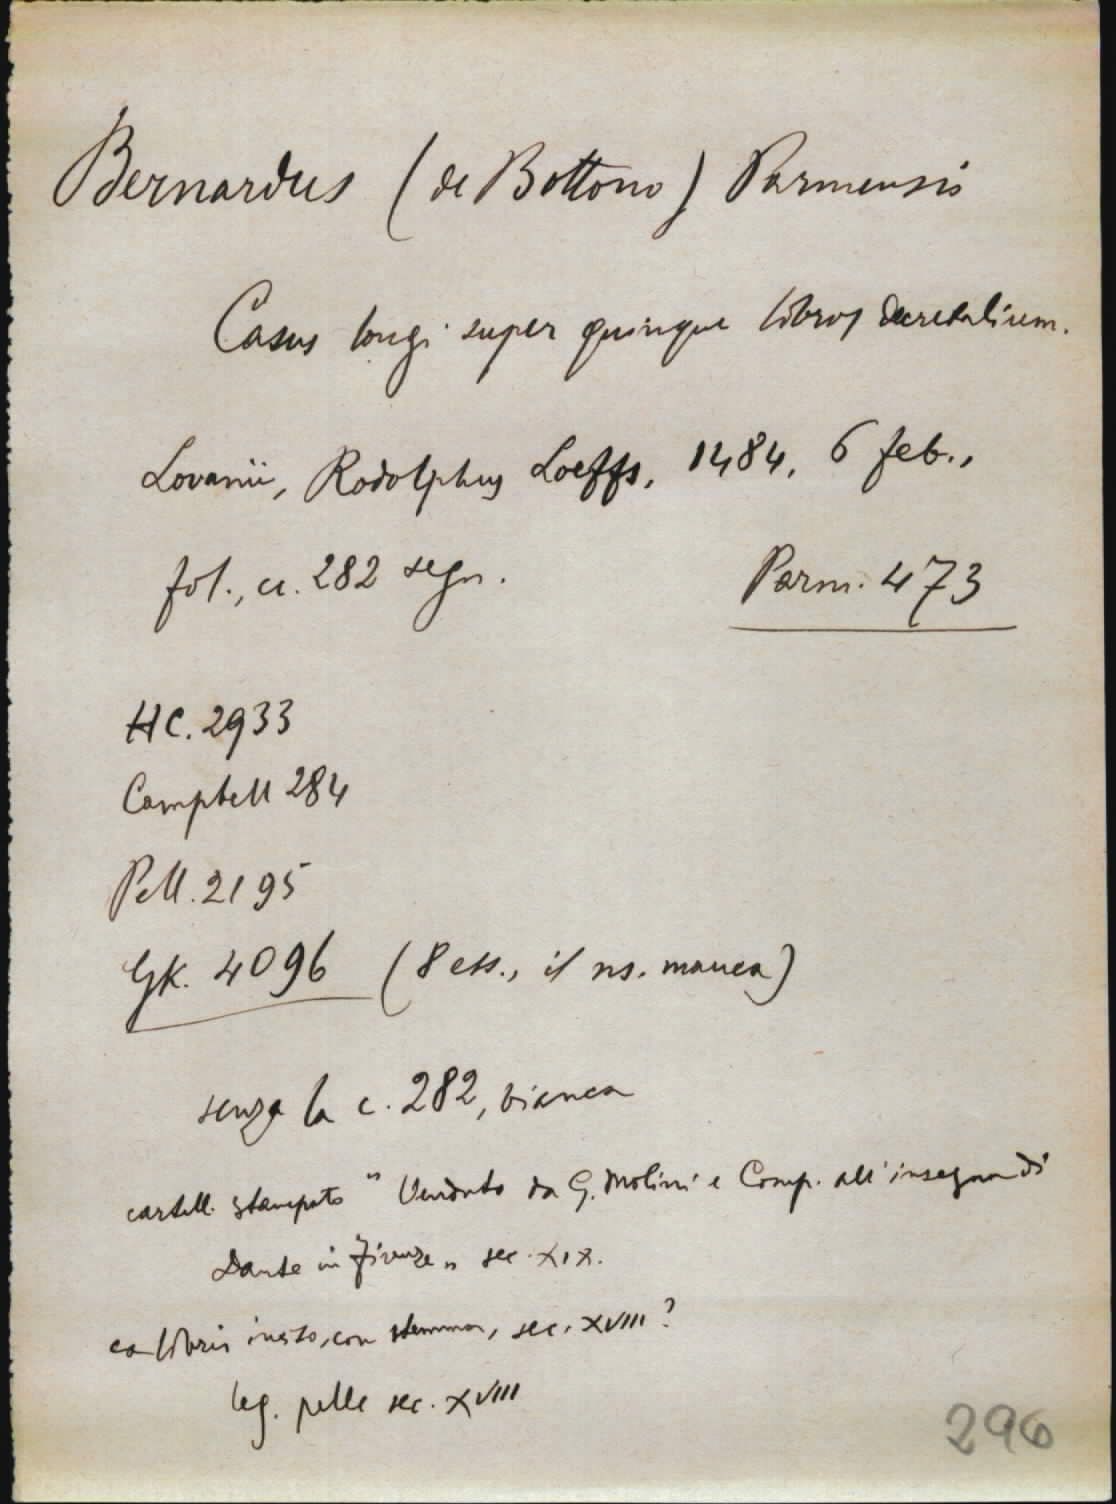 Bernardus (de Bottono) Parmensis
Casus longi super quinque libros decretalium.
Lovanii, Rodolphus Loeffs, 1484, 6 feb.,
fol., cc. 282 segn.
Parm. 473
HC. 2933
Campbell 284
Pell. 2195
GK. 4096 (8 ess., il ns. manca)
senza la c. 282, bianca
cartell. stampato "Venduto da G. Molini e Comp. all'insegna di
Dante in Firenze" sec. XIX.
ex libris inciso, con stemma, sec. XVIII?
leg. pelle sec. XVIII
296